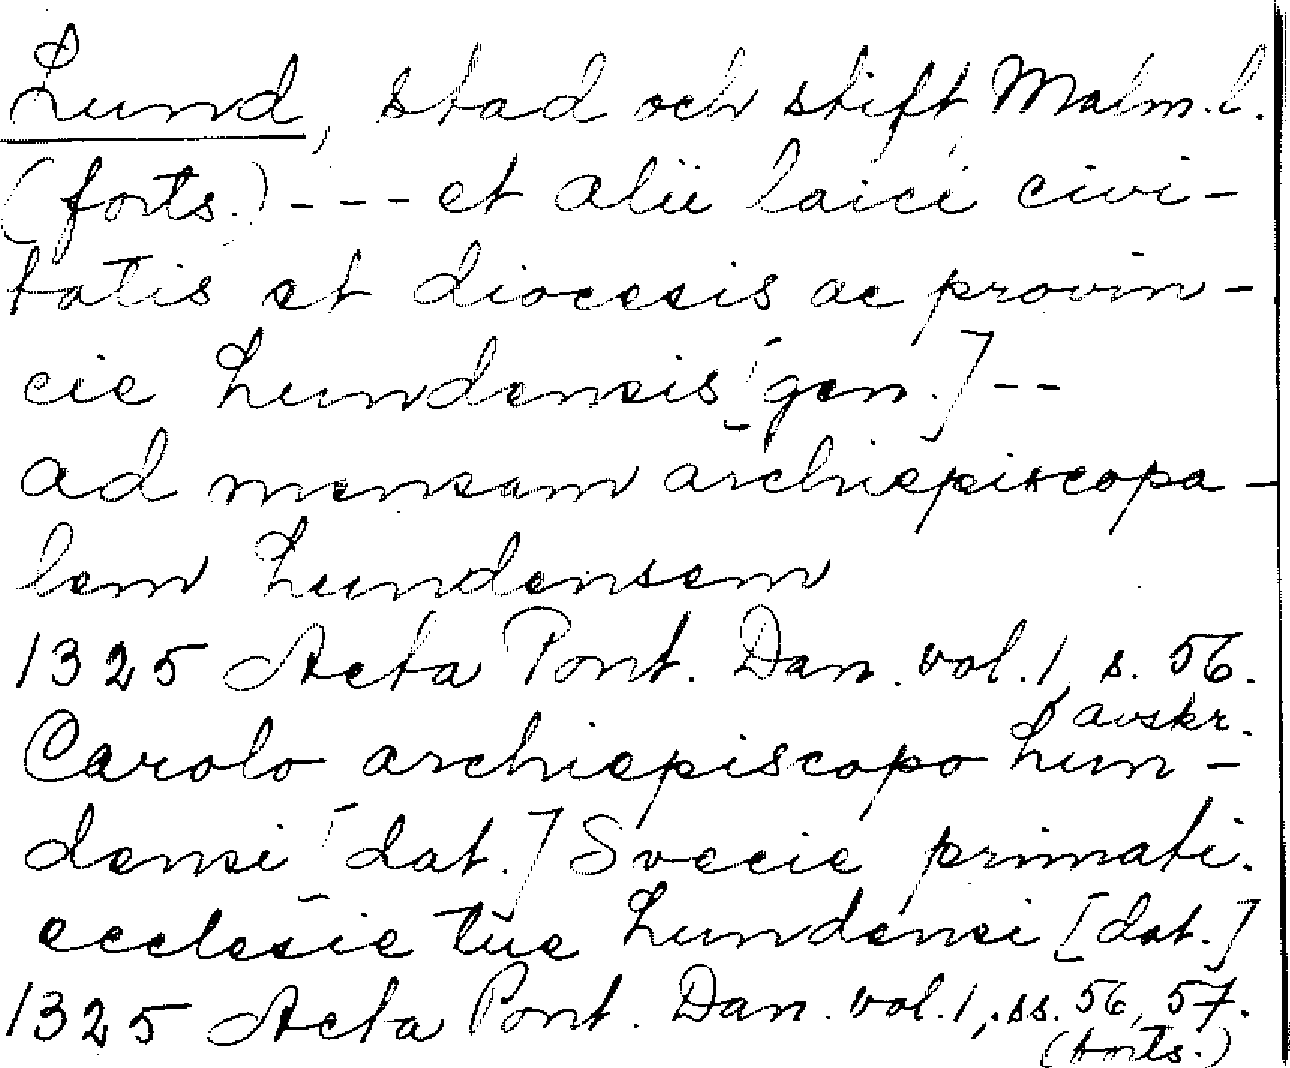 Lund, stad och stift, Malm. l.
(forts.) --- et alii laici civi-
tatis et diocesis ac provin-
cie Lundensis [gen.] --
ad mensam archiepiscopa-
lem Lundensem
1325 Acta Pont. Dan. vol. 1, s. 56.
avskr.
Carolo archiepiscopo Lun-
densi [dat.] Svecie primati.
ecclesie tue Lundensi [dat.]
1325 Acta Pont. Dan. vol. 1, ss. 56, 57.
(forts.)